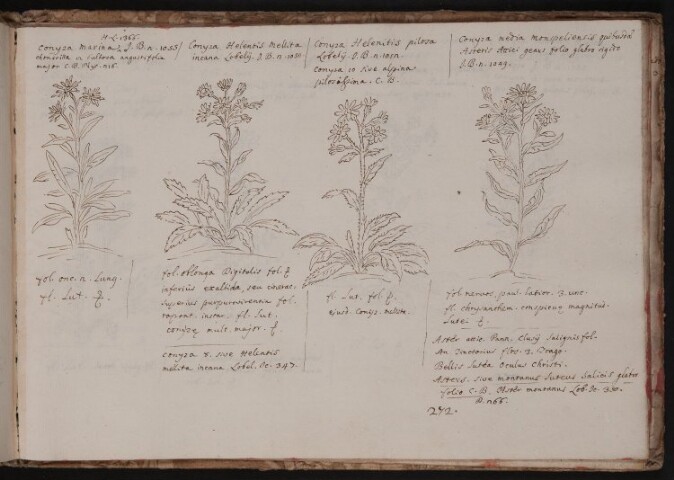 H. L. 1366.
Conyza marina J. B. n. 1053
angustifolia
major C. B. Phyt. n6.
Conyza Helenitis Mellita
incana Lobelij. J. B. n. 1050
Conyza Helenitis pilosa
Lobelij. J. B. n. 1050.
Conyza 10 sive alpina
pilosissima. C. B.
Conyza media monspeliensis quibusd
Asteris Attici genus folio glabro rigido
J. B. n. 1049.
fol. onc. n. Lung.
fl. Lut.
fol. oblonga Digitalis fol.
inferius exalbida, seu cinerac.
superius purpurascentia fol.
rapont. instar. fl. Lut.
conyzę mult. major.
Conyza 8. sive Helenitis
melita incana Lobel. Ic. 347.
fl. Lut. fol.
ejusd. Conyz. melitę.
fol. nervos. paul. latior. 3. unc.
fl. chrysanthem. conspicuę magnitud.
Lutei
Aster attic. Pann. Clusij Salignis fol.
An. Tinctorius flos. 3. Trago.
Bellis Lutea Oculus Christi.
Asteris. sive montanus luteus, salicis glabro
folio C. B. Aster montanus Lob. Ic. 350.
272.